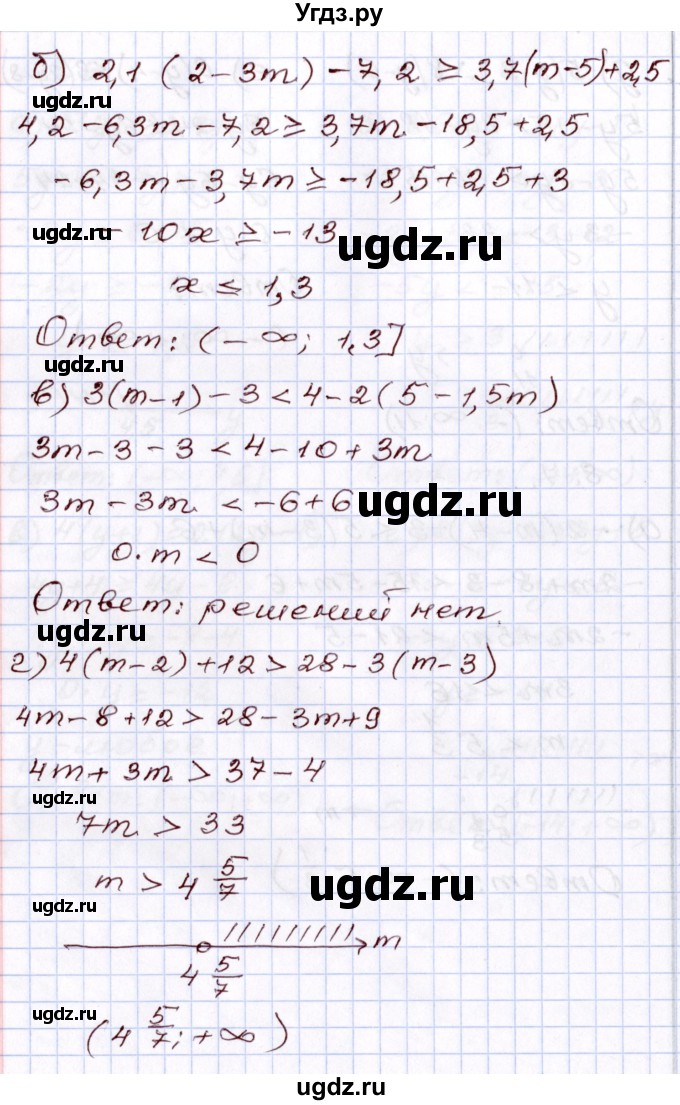 Угдз.ру
б) 2,1 (2-3m) - 7,2 ≥ 3,7(m-5)+2,5
ugdz.ru
4,2 - 6,3m - 7,2 ≥ 3,7m - 18,5 + 2,5
- 6,3m - 3,7m ≥ -18,5 + 2,5 + 3
ugdz.ru - 10x ≥ -13 ugdz.ru
x ≤ 1,3
Ответ: (-∞; 1,3]
ugdz.ru
в) 3(m-1) - 3 < 4 - 2(5 - 1,5m)
3m - 3 - 3 < 4 - 10 + 3m
ugdz.ru
3m - 3m < -6 + 6 ugdz.ru
0·m < 0
Ответ: решений нет.
ugdz.ru
г) 4(m-2) + 12 > 28 - 3(m-3)
4m - 8 + 12 > 28 - 3m + 9
4m + 3m > 37 - 4
ugdz.ru
7m > 33
m > 4 5/7 ugdz.ru
ugdz.ru
m
4 5/7
ugdz.ru
(4 5/7; +∞)
ugdz.ru